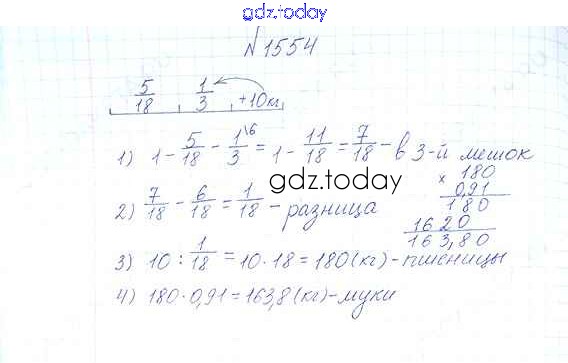 gdz.today
№1554
5/18 1/3 +10кг
1) 1 - 5/18 - 1/3 \6 = 1 - 11/18 = 7/18 - в 3-й мешок
2) 7/18 - 6/18 = 1/18 - разница
gdz.today
× 180
0,91
180
1620
163,80
3) 10 : 1/18 = 10 · 18 = 180 (кг) - пшеницы
4) 180 · 0,91 = 163,8 (кг) - муки